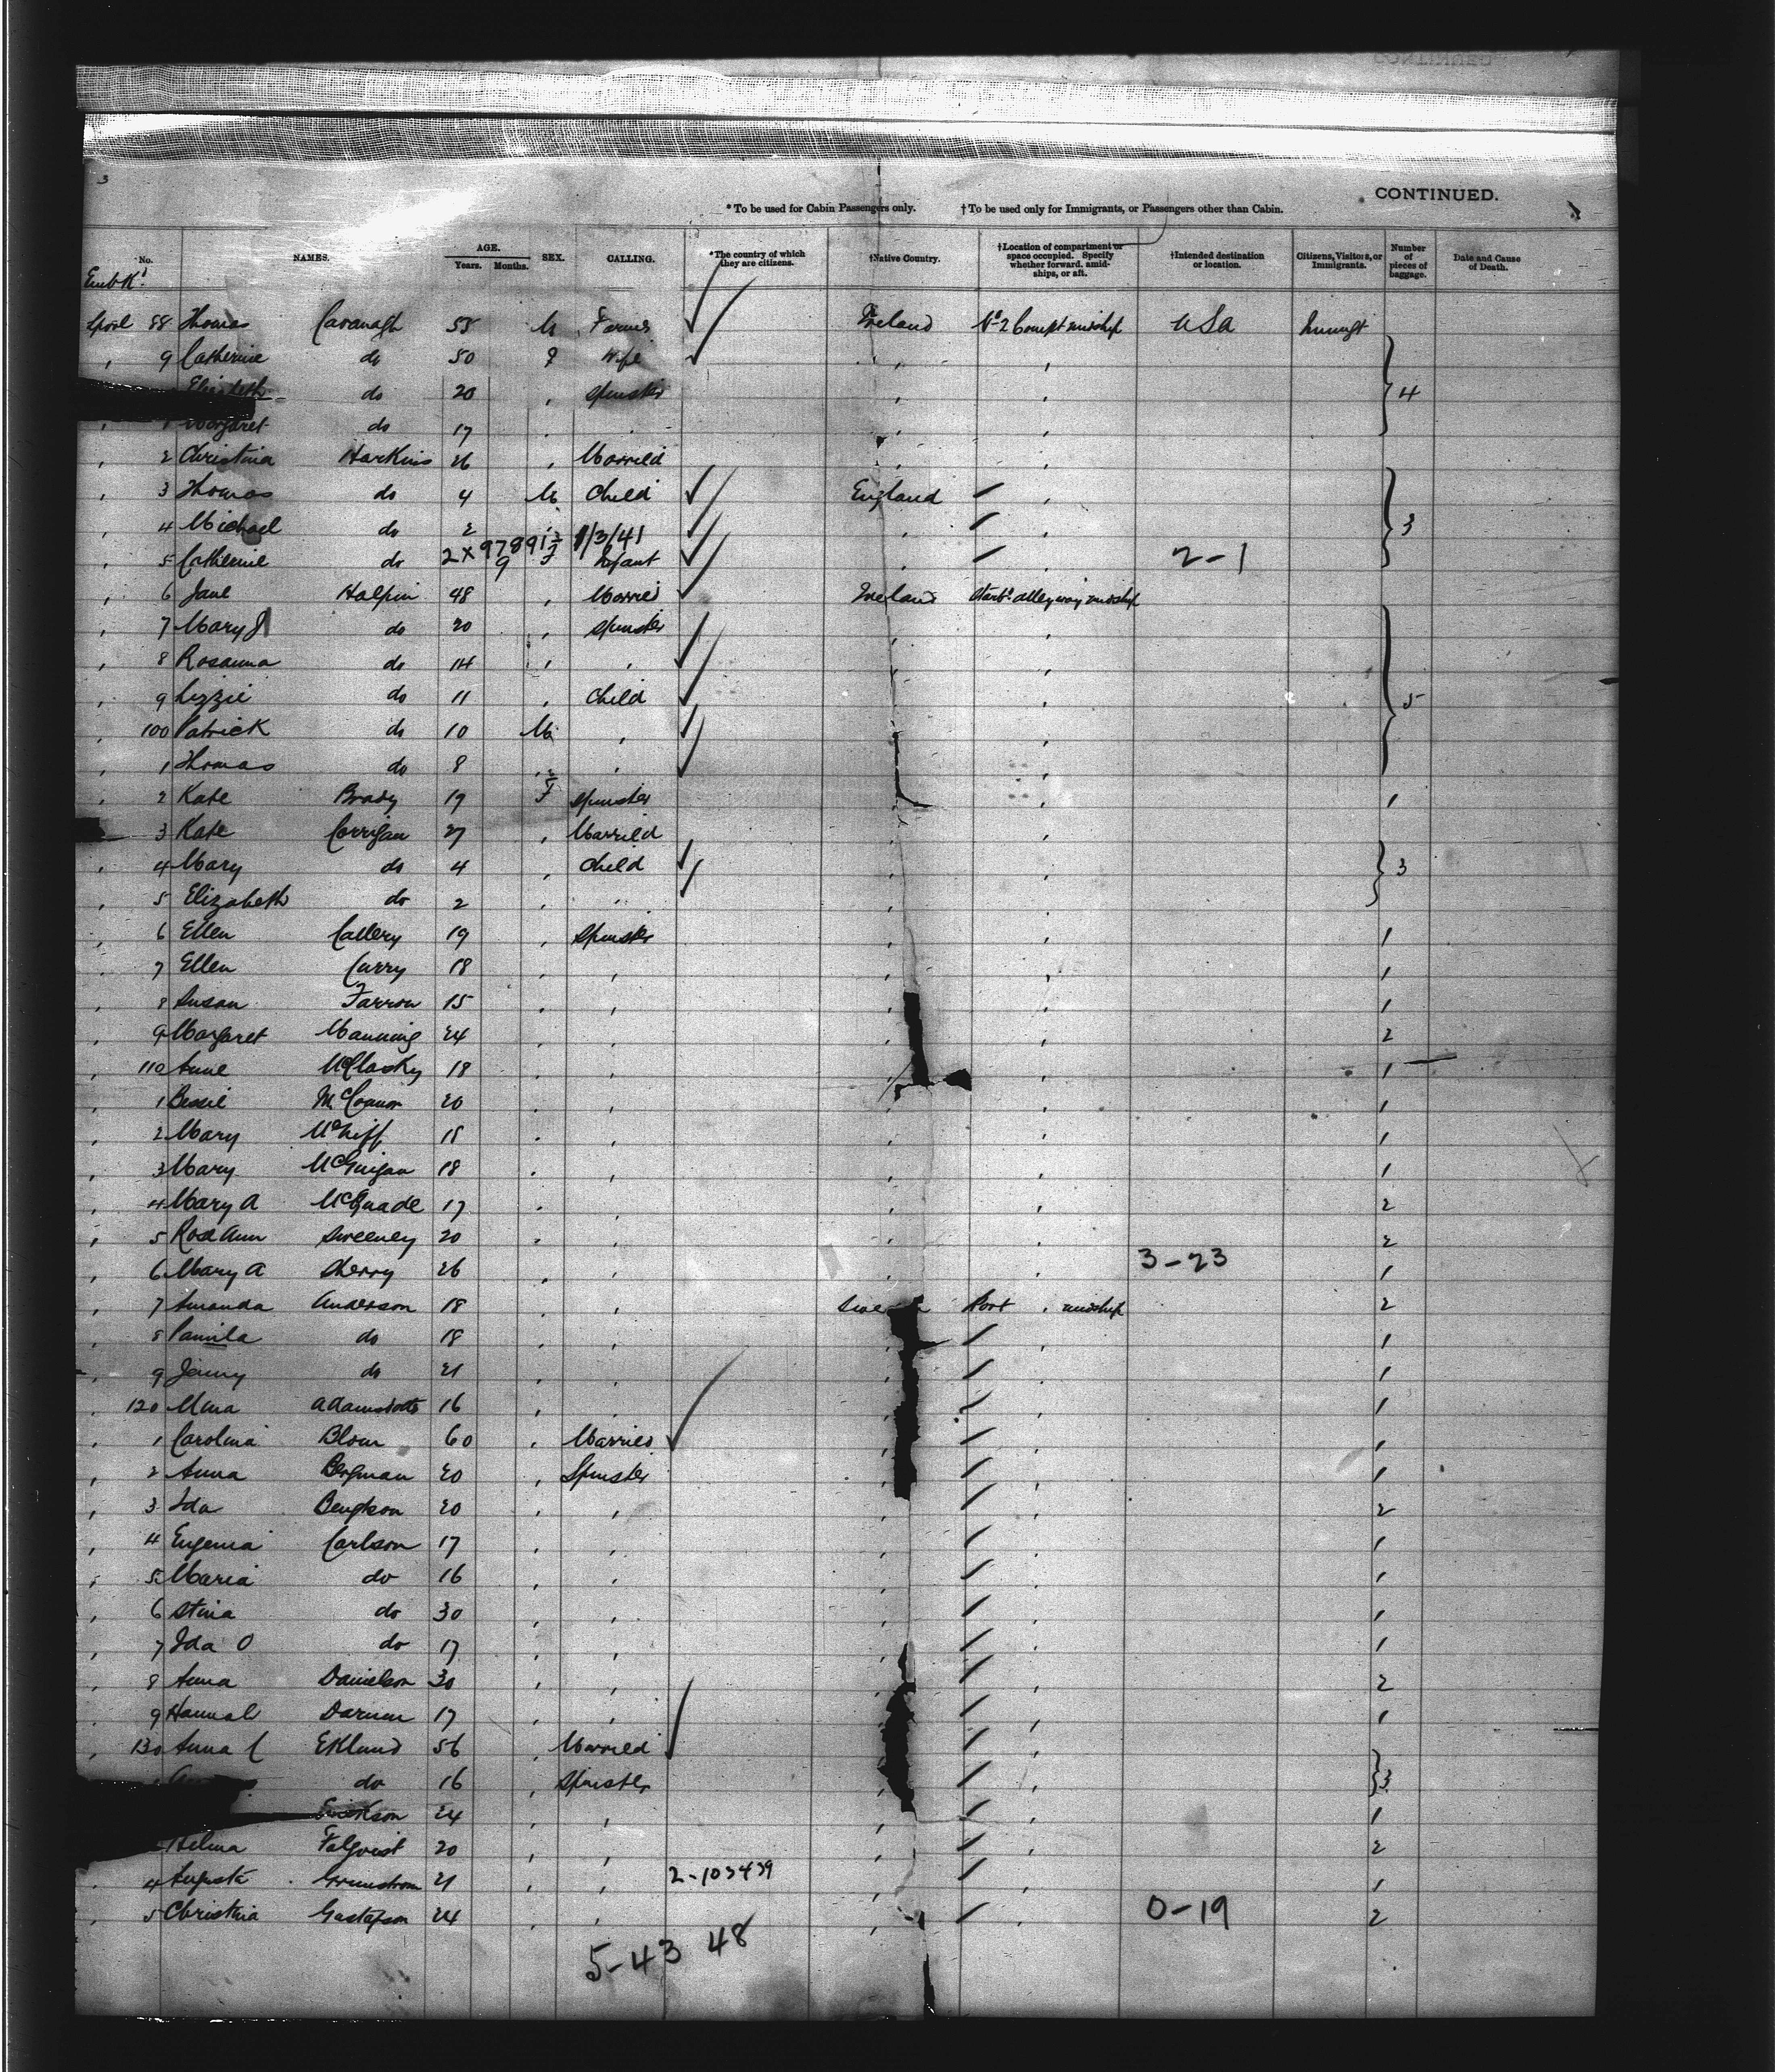 3
CONTINUED.
* To be used for Cabin Passengers only. † To be used only for Immigrants, or Passengers other than Cabin.
No. NAMES. AGE. Years. Months. SEX. CALLING. *The country of which they are citizens. †Native Country. †Location of compartment or space occupied. Specify whether forward, amidships, or aft. †Intended destination or location. Citizens, Visitors, or Immigrants. Number of pieces of baggage. Date and Cause of Death.
Embkd
Lpool 88 Thomas Cavanagh 55 M Farmer Ireland No 2 Compt midship USA Immigt
9 Catherine do 50 F Wife
Elizabeth do 20 " Spinster 4
1 Margaret do 17
2 Christina Harkins 26 " Married
3 Thomas do 4 M Child England
4 Michael do 2 3
2X97891 1/3/41
5 Catherine do 9 F Infant 2-1
6 Jane Halpin 48 " Married Ireland Starbd alleyway midship
7 Mary J do 20 " Spinster
8 Rosanna do 14 " "
9 Lizzie do 11 " Child 5
100 Patrick do 10 M "
1 Thomas do 8 " "
2 Kate Brady 19 F Spinster 1
3 Kate Corrigan 27 " Married
4 Mary do 4 " Child 3
5 Elizabeth do 2 " "
6 Ellen Callery 19 " Spinster 1
7 Ellen Curry 18 " " 1
8 Susan Farron 15 " " 1
9 Margaret Manning 24 " " 2
110 Anne McClosky 18 " " 1
1 Bessie McConnor 20 " " 1
2 Mary 18 " " 1
3 Mary McGuigan 18 " " 1
4 Mary A McQuade 17 " " 2
5 Rose Ann Sweeney 20 " " 2
3-23
6 Mary A Sherry 26 " " 1
7 Amanda Anderson 18 " " Swe Port " midship 2
8 Pamila do 18 " " 1
9 Jenny do 21 " " 1
120 Mina 16 " " 1
1 Carolina Blom 60 " Married 1
2 Anna Bergman 20 " Spinster 1
3 Ida Bengtson 20 " " 2
4 Eugenia Carlson 17 " " 1
5 Maria do 16 " " 1
6 Stina do 30 " " 1
7 Ida O do 17 " " 1
8 Anna Danielson 30 " " 2
9 Hannah 17 " " 1
130 Anna C Eklund 56 " Married
do 16 " Spinster 3
Erickson 24 " " 1
Helma Falqvist 20 " " 2
4 Augusta Grunstrom 21 " " 2-103439 1
5 Christina Gustafson 24 " " 0-19 2
5-43 48